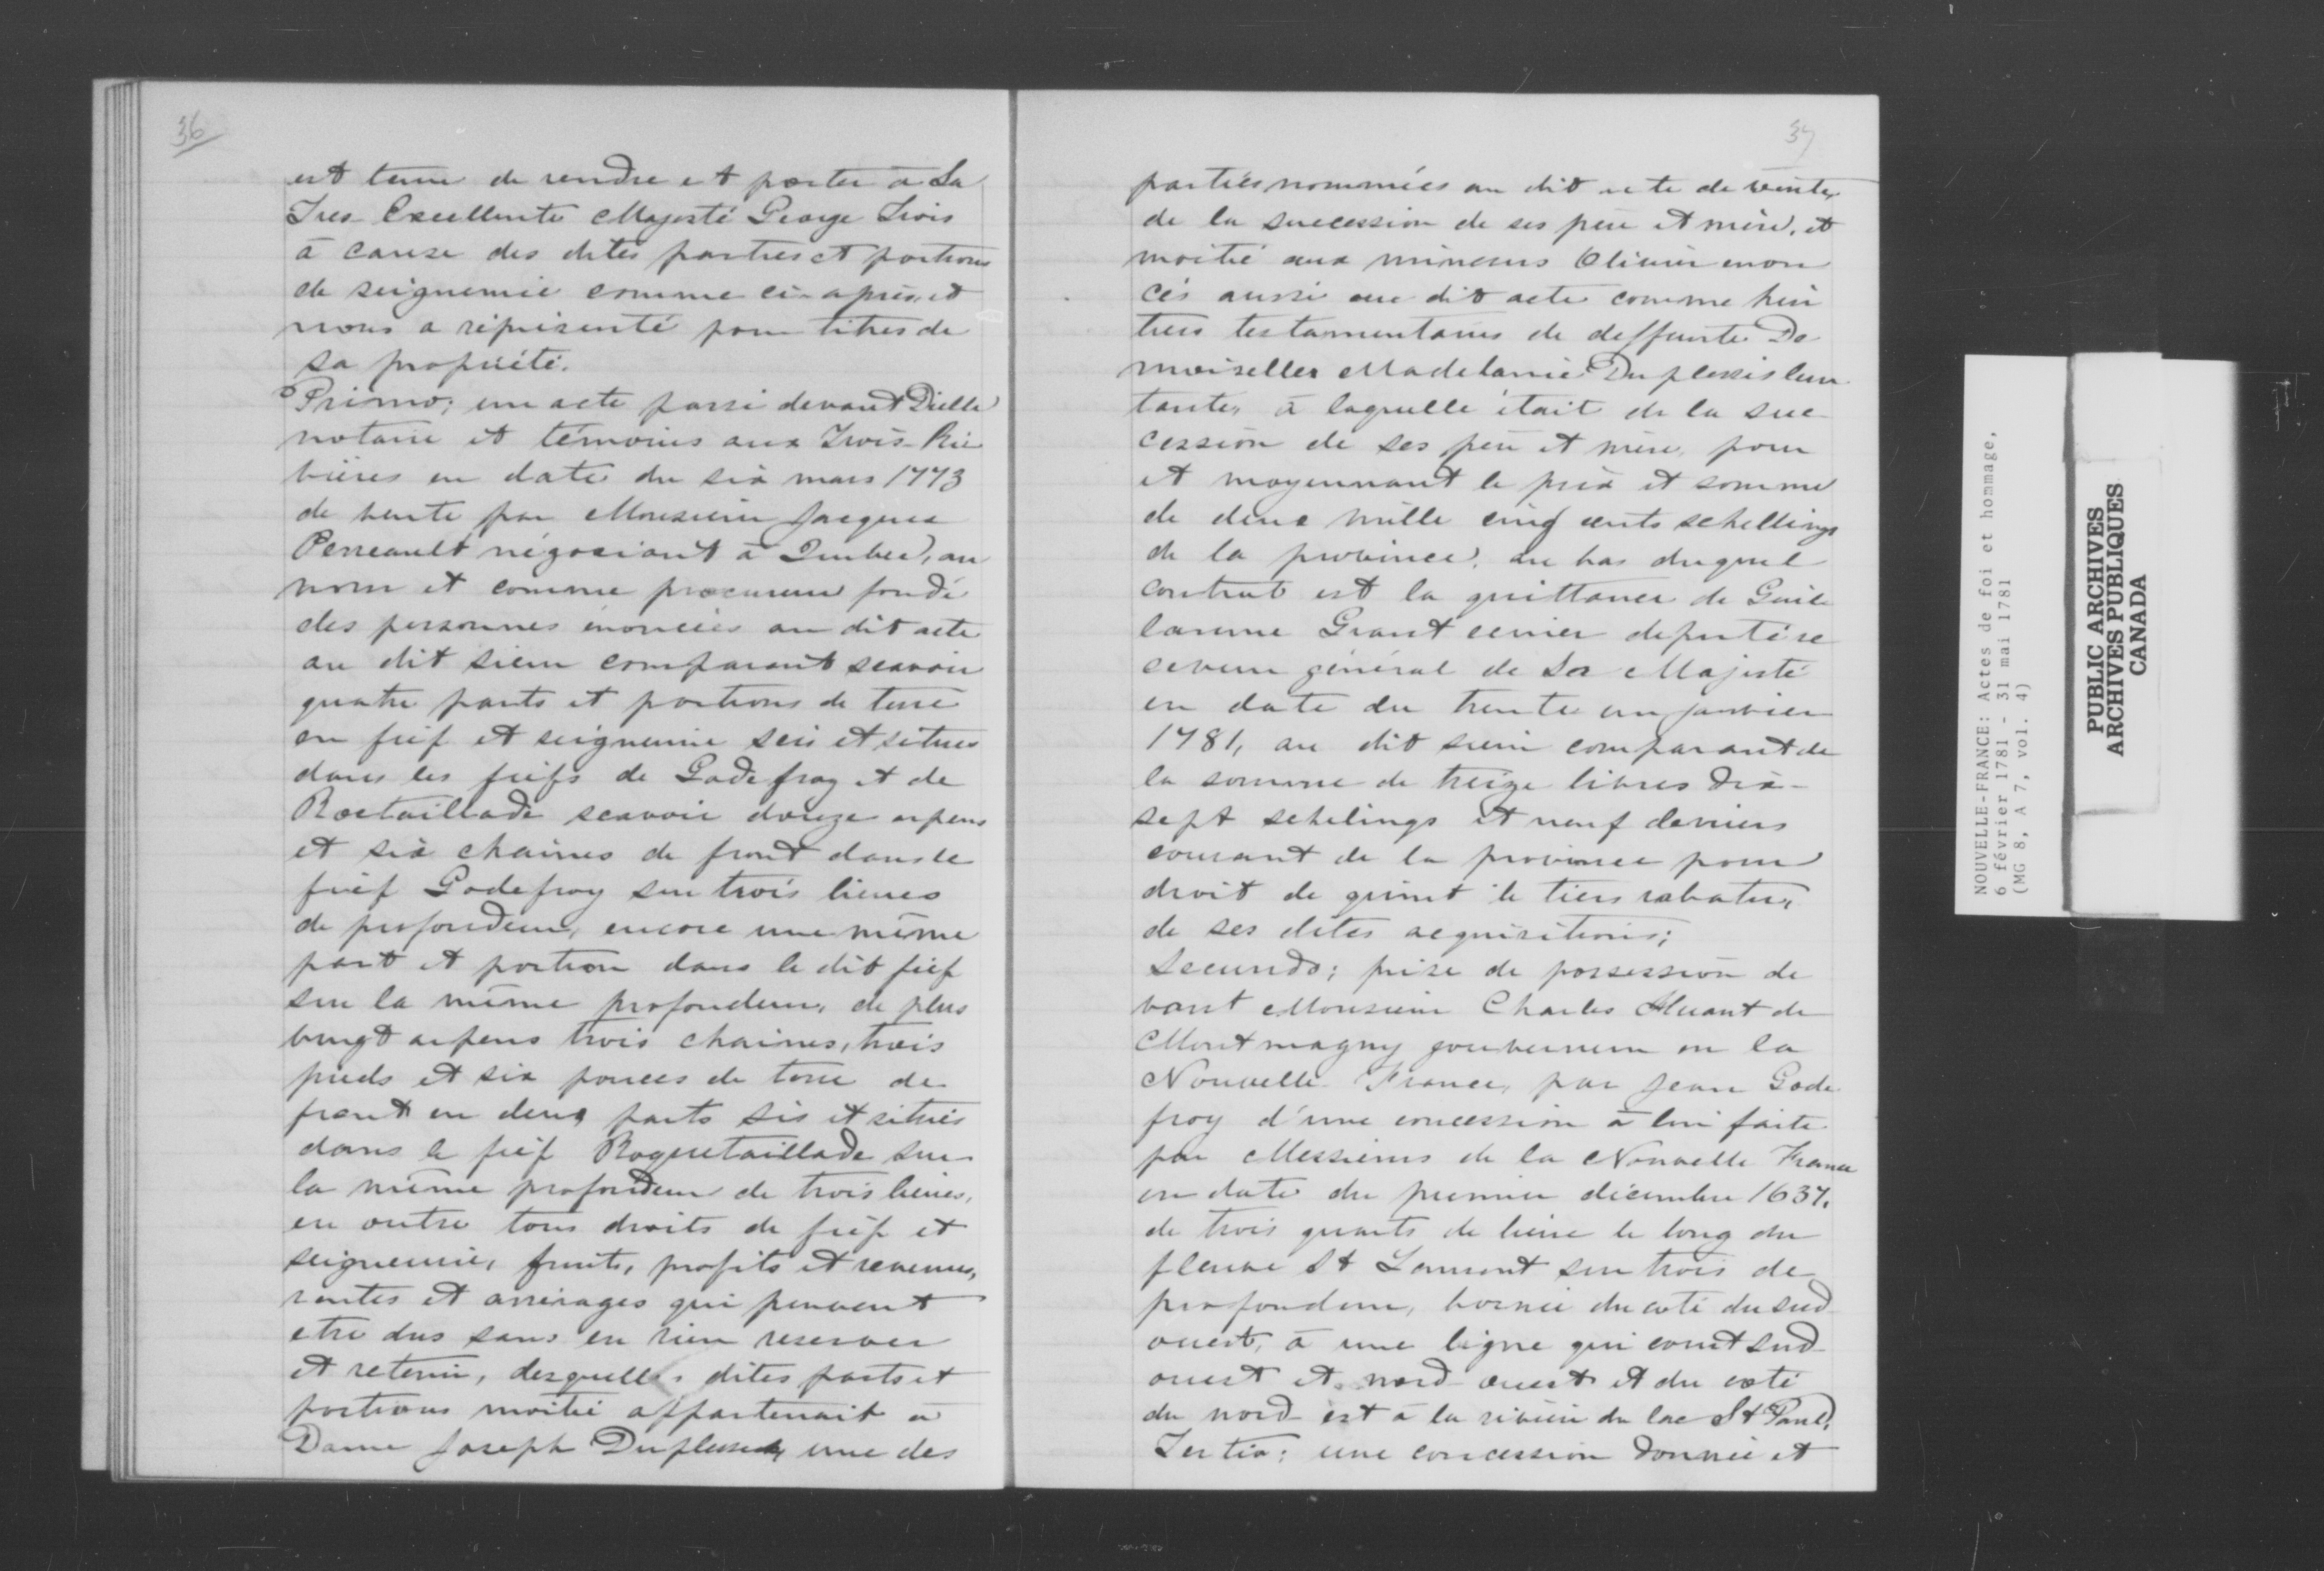 36
est tenu de rendre et porter à Sa
Très Excellente Majesté George Trois
à cause des dites parties et portions
de seigneurie comme ci-après, et
nous a réprésenté pour titres de
sa propriété.
Primo; un acte passé devant Dielle
notaire et témoins aux Trois-Ri
vières en date du six mars 1773
de vente par Monsieur Jacques
Perreault négociant à Quebec, au
nom et comme procureur fondé
des personnes énoncées au dit acte
au dit sieur comparant scavoir
quatre parts et portions de terre
en fief et seigneurie scis et situés
dans les fiefs de Godefroy et de
Roctaillade scavoir douze arpens
et six chaines de front dans le
fief Godefroy sur trois lieues
de profondeur, encore une même
part et portion dans le dit fief
sur la même profondeur, de plus
vingt arpens trois chaines, trois
pieds et six pouces de terre de
front en deux parts sis et situés
dans le fief Roquetaillade sur
la même profondeur de trois lieues,
en outre tous droits de fief et
seigneurie, fruits, profits et revenus,
rentes et arrérages qui peuvent
etre dus sans en rien reserver
et retenir, desquelles dites parts et
portions moitié appartenait à
Dame Joseph Duplessis une des
37
parties nommées au dit acte de vente,
de la succession de ses père et mère, et
moitié aux mineurs Olivier enon
cés aussi au dit acte comme héri
tiers testamentaires de deffunte De
moiselles Madelanie Duplessis leur
tante, à laquelle était de la suc
cession de ses père et mère, pour
et moyennant le prix et somme
de deux mille cinq cents schellings
de la province, au bas duquel
contrat est la quittance de Guil
laume Grant écuier députére
ceveur général de Sa Majesté
en date du trente un janvier
1781, au dit sieur comparant de
la somme de treize livres dix-
sept schelings et neuf deniers
courant de la province pour
droit de quint le tiers rabatu,
de ses dites acquisitions;
Secundo; prise de possession de
vant Monsieur Charles Huant de
Montmagny gouverneur en la
Nouvelle-France, par Jean Gode
froy d'une concession à lui faite
par Messieurs de la Nouvelle France
en date du premier décembre 1637.
de trois quarts de lieue le long du
fleuve St Laurent sur trois de
profondeur, bornée du coté du sud
ouest, à une ligne qui court sud
ouest et nord ouest et du coté
du nord est à la rivière du lac St Paul.
Tertio: une concession donnée et
NOUVELLE-FRANCE: Actes de foi et hommage,
6 février 1781 - 31 mai 1781
(MG 8, A 7, vol. 4)
PUBLIC ARCHIVES
ARCHIVES PUBLIQUES
CANADA